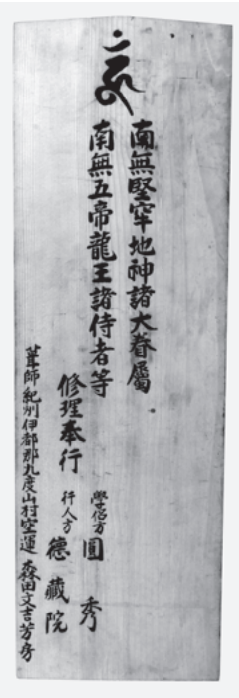 南無堅牢地神諸大眷屬
南無五帝龍王諸侍者等
修理奉行
學侶方 圓秀
行人方 德藏院
葺師紀州伊都郡九度山村空運 森田文吉芳房